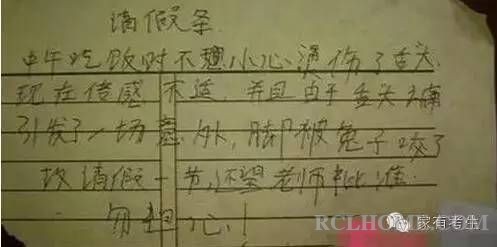 请假条
中午吃饭时不小心烫伤了舌头
现在倍感不适,并且由于舌头太痛
引发了一场意外,脚被兔子咬了
故请假一节,还望老师批准
勿担心!
RCLHOME.COM
家有考生